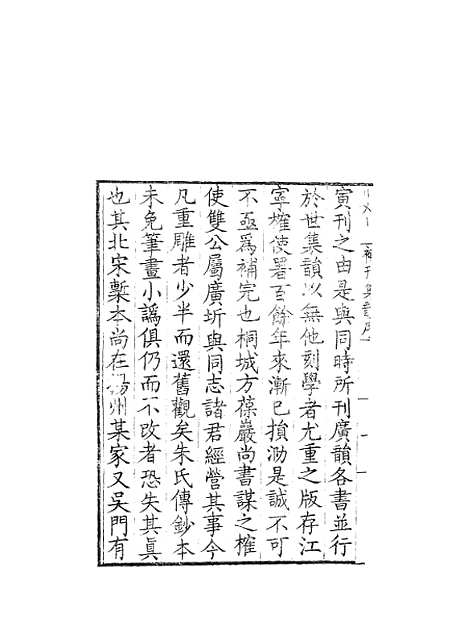 補刊集韻序
寅刊之由是與同時所刊廣韻各書並行
於世集韻以無他刻學者尤重之版存江
寧榷使署百餘年來漸已損泐是誠不可
不亟爲補完也桐城方葆巖尚書謀之榷
使雙公屬廣圻與同志諸君經營其事今
凡重雕者少半而還舊觀矣朱氏傳鈔本
未免筆畫小譌俱仍而不改者恐失其眞
也其北宋槧本尚在揚州某家又吳門有